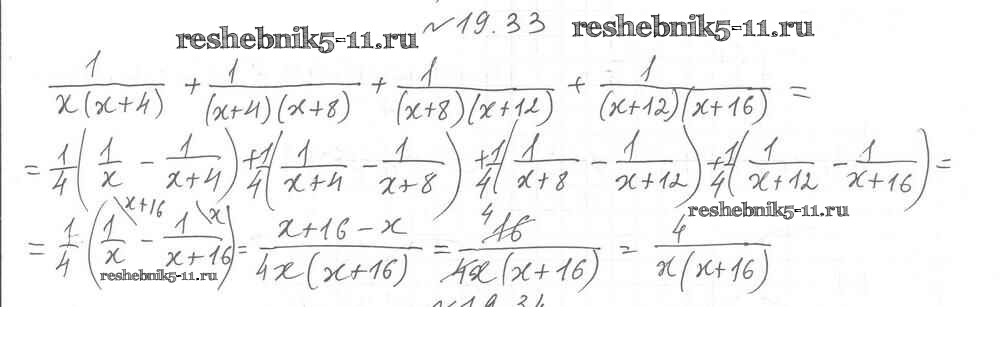 №19.33
reshebnik5-11.ru reshebnik5-11.ru
1/(x(x+4)) + 1/((x+4)(x+8)) + 1/((x+8)(x+12)) + 1/((x+12)(x+16)) =
= 1/4 (1/x - 1/(x+4)) + 1/4 (1/(x+4) - 1/(x+8)) + 1/4 (1/(x+8) - 1/(x+12)) + 1/4 (1/(x+12) - 1/(x+16)) =
reshebnik5-11.ru
= 1/4 (1\x+16/x - 1\x/(x+16)) = (x+16-x)/(4x(x+16)) = 16 4/(4x(x+16)) = 4/(x(x+16))
reshebnik5-11.ru